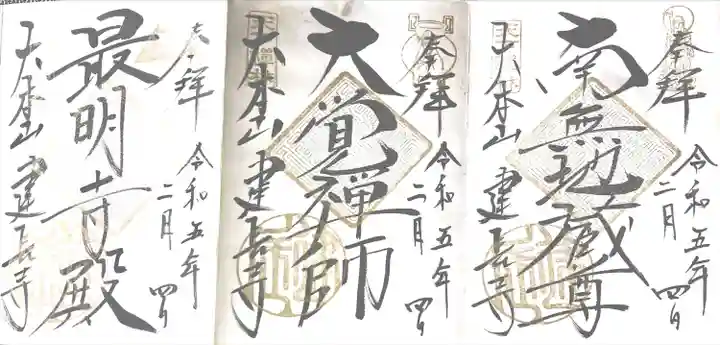 奉拝
令和五年
二月 四日
南無地蔵尊
大本山 建長寺
奉拝
令和五年
二月 四日
大覚禅師
天下禅林
大本山 建長寺
奉拝
令和五年
二月 四日
最明寺殿
大本山 建長寺